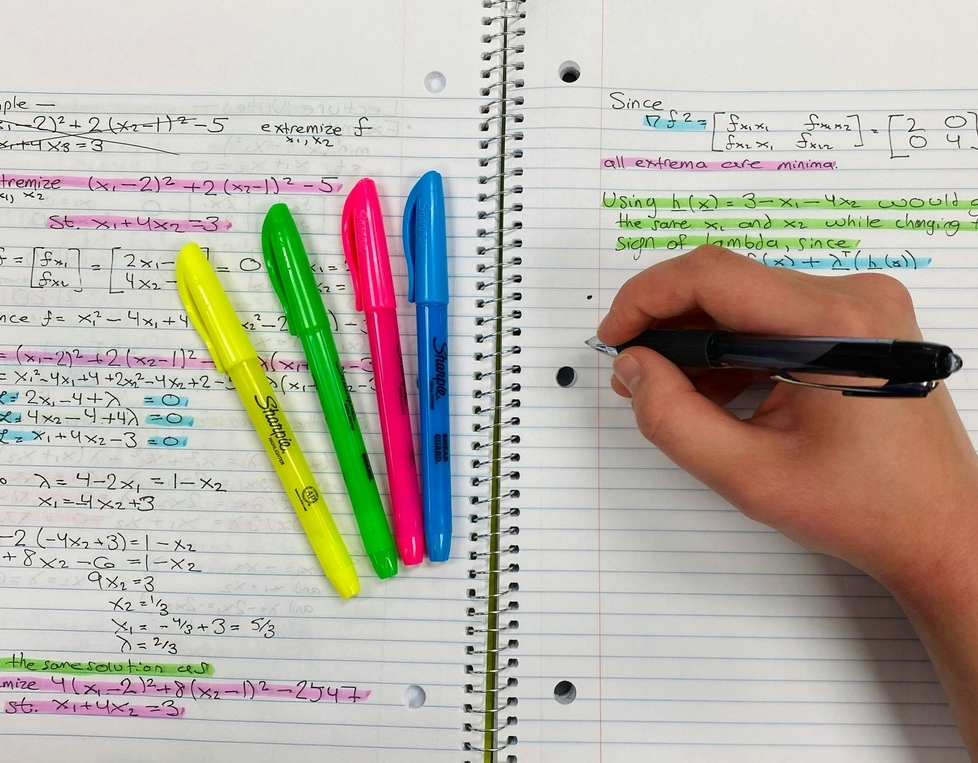 ple —
x₁-2)²+2(x₂-1)²-5 extremize f
x₁,x₂
x₁+4x₂=3
tremize (x₁-2)²+2(x₂-1)²-5
x₁,x₂
st. x₁+4x₂=3
f = [fx₁ fx₂] = [2x₁- 4x₂-] = 0 x₁=
x₂=
nce f= x₁²-4x₁+4 x₂²-2
= (x₁-2)²+2(x₂-1)²- λ(x₁-
= x₁²-4x₁+4+2x₂²-4x₂+2-5 λ(x₁-
= 2x₁-4+λ =0
= 4x₂-4+4λ =0
= x₁+4x₂-3 =0
o λ=4-2x₁=1-x₂
x₁=-4x₂+3
-2(-4x₂+3)=1-x₂
+8x₂-6=1-x₂
9x₂=3
x₂=1/3
x₁=-4/3+3=5/3
λ=2/3
the same solution as
mize 4(x₁-2)²+8(x₂-1)²-2547
st. x₁+4x₂=3
Sharpie
HIGHLIGHTER
AP
Sharpie
SMEAR GUARD
Since
∇f² = [fx₁x₁ fx₁x₂ fx₂x₁ fx₂x₂] = [2 0 0 4
all extrema are minima.
Using h(x) = 3-x₁-4x₂ would
the same x₁ and x₂ while changing
sign of lambda, since
f(x) + λᵀ(h(x))